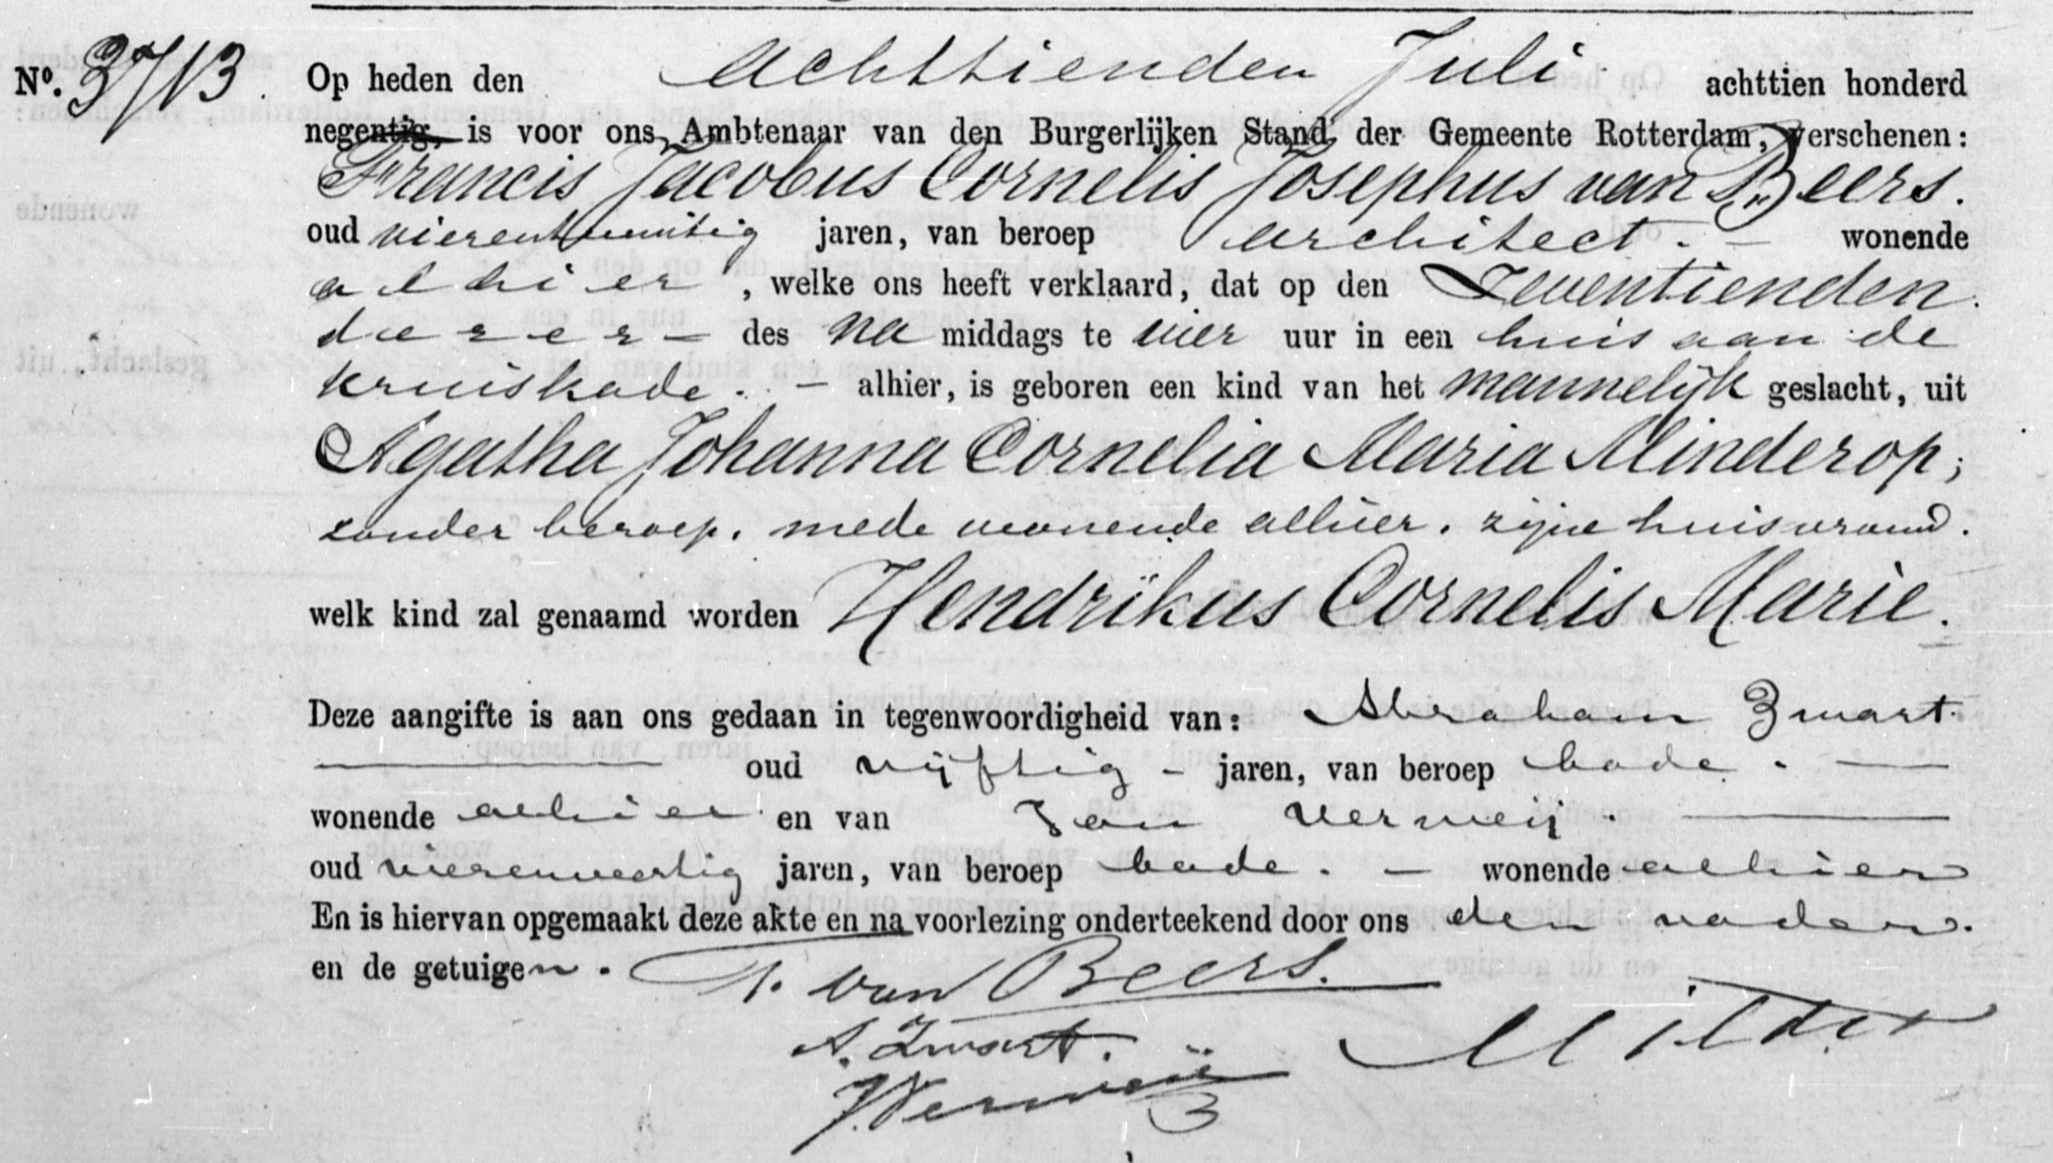 Nº. 3713 Op heden den achttienden Juli achttien honderd
negentig, is voor ons, Ambtenaar van den Burgerlijken Stand der Gemeente Rotterdam, verschenen:
Francis Jacobus Cornelis Josephus van Beers.
oud vierentwintig jaren, van beroep architect. – wonende
alhier, welke ons heeft verklaard, dat op den Zeventienden
dezer – des na middags te vier uur in een huis aan de
Kruiskade. – alhier, is geboren een kind van het mannelijk geslacht, uit
Agatha Johanna Cornelia Maria Minderop,
zonder beroep, mede wonende alhier. zijne huisvrouw.
welk kind zal genaamd worden Hendrikus Cornelis Marie.
Deze aangifte is aan ons gedaan in tegenwoordigheid van: Abraham Zwart.
oud vijftig – jaren, van beroep bode. –
wonende alhier en van Jan Verweij.
oud vierenveertig jaren, van beroep bode. – wonende alhier
En is hiervan opgemaakt deze akte en na voorlezing onderteekend door ons den vader.
en de getuigen. F. van Beers.
A. Zwart.
J. Verweij